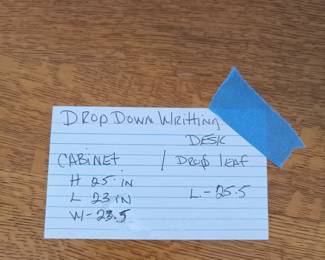 Drop Down Writting
Desk
Cabinet / Drop leaf
H 25 in
L 23 in L-25.5
W-23.5